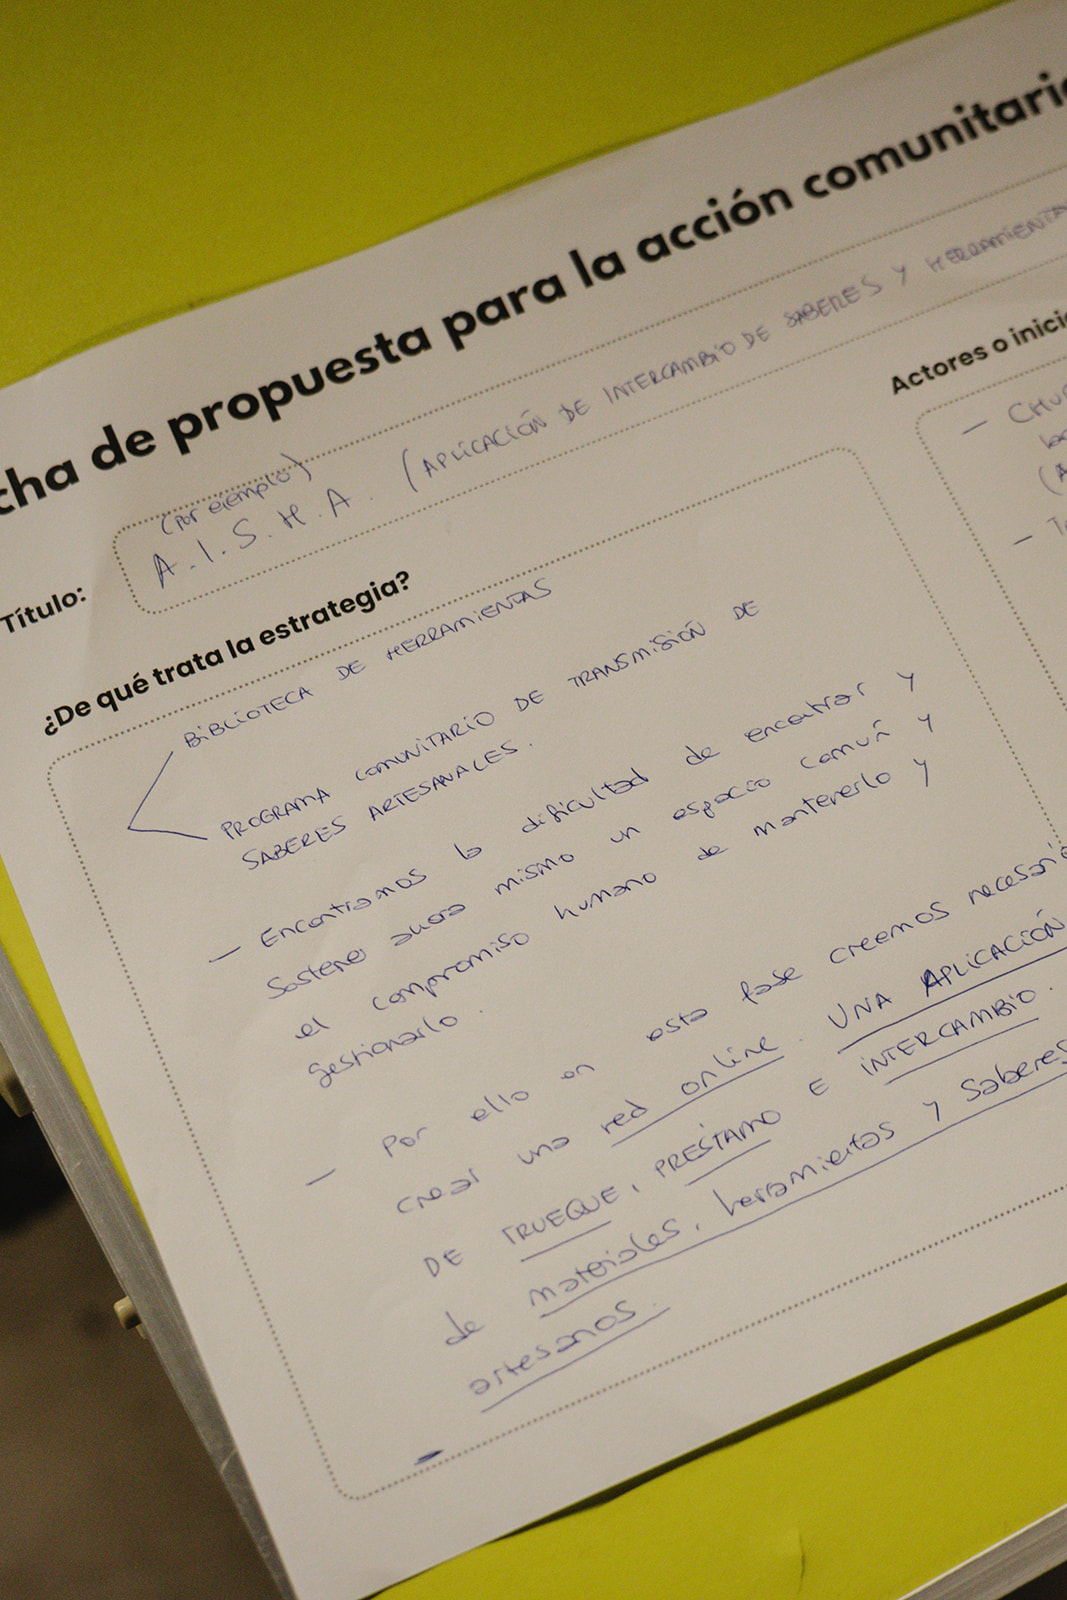 cha de propuesta para la acción comunitari
Título:
(por ejemplo)
A.I.S.H.A. (APLICACIÓN DE INTERCAMBIO DE SABERES Y HERRAMIENTA
¿De qué trata la estrategia?
BIBLIOTECA DE HERRAMIENTAS
PROGRAMA COMUNITARIO DE TRANSMISIÓN DE
SABERES ARTESANALES.
- Encontramos la dificultad de encontrar y
sostener ahora mismo un espacio común y
el compromiso humano de mantenerlo y
gestionarlo.
- Por ello en esta fase creemos necesari
crear una red online. UNA APLICACIÓN
DE TRUEQUE, PRÉSTAMO E INTERCAMBIO.
de materiales, herramientas y saberes
artesanos.
-
Actores o inici
- CHU
(A
- T